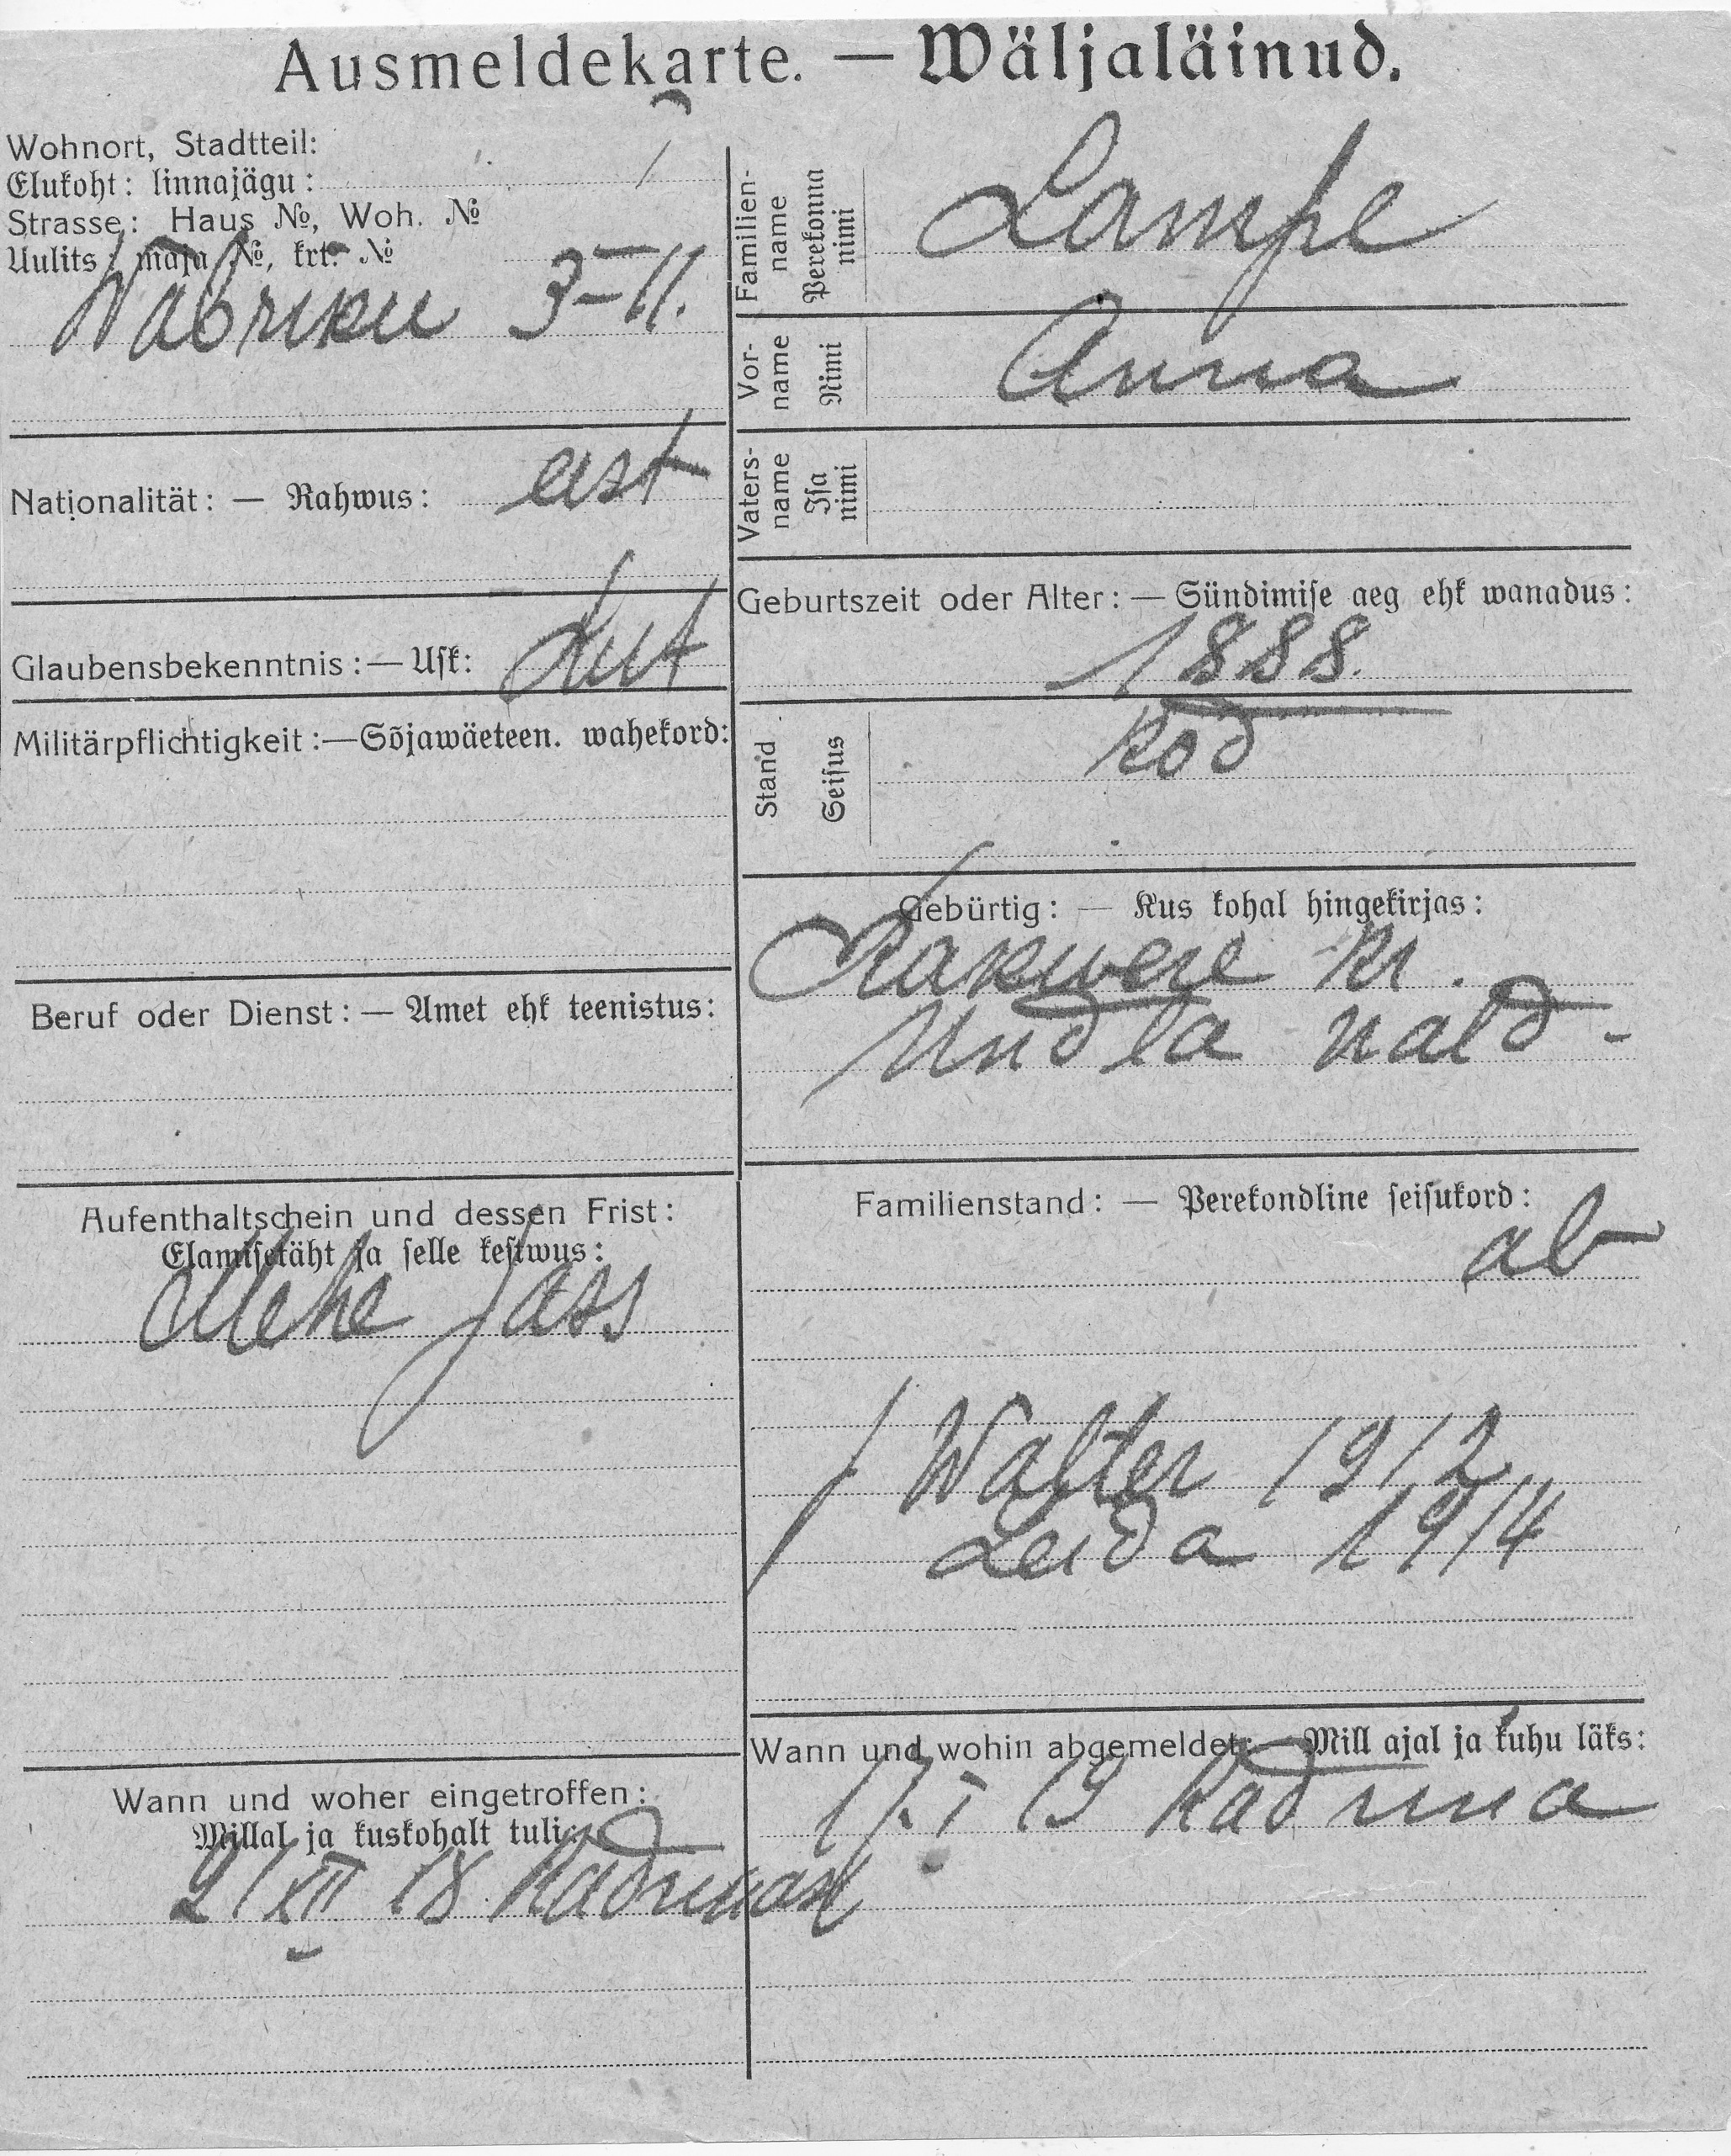 Ausmeldekarte. — Wäljaläinud.
Wohnort, Stadtteil:
Elukoht: linnajägu:
Strasse: Haus №, Woh. №
Uulits: maja №, krt. №
Wabriku 3-11.
Familien-
name
Perekonna
nimi
Lampe
Vor-
name
Nimi
Anna
Vaters-
name
Isa
nimi
Nationalität: — Rahwus: eest
Glaubensbekenntnis: — Usk: Lut
Militärpflichtigkeit: — Sõjawäeteen. wahekord:
Beruf oder Dienst: — Amet ehk teenistus:
Aufenthaltschein und dessen Frist:
Elamisetäht ja selle kestwus:
Mehe pass
Wann und woher eingetroffen:
Millal ja kuskohalt tuli:
21 XII 18 Kadrinast
Geburtszeit oder Alter: — Sündimise aeg ehk wanadus:
1888.
Stand
Seisus
kod
Gebürtig: — Kus kohal hingekirjas:
Rakwere kr.
Undla wald -
Familienstand: — Perekondline seisukord:
ab
Walter 1912
Leida 1914
Wann und wohin abgemeldet: — Mill ajal ja kuhu läks:
17. I 19 Kadrina